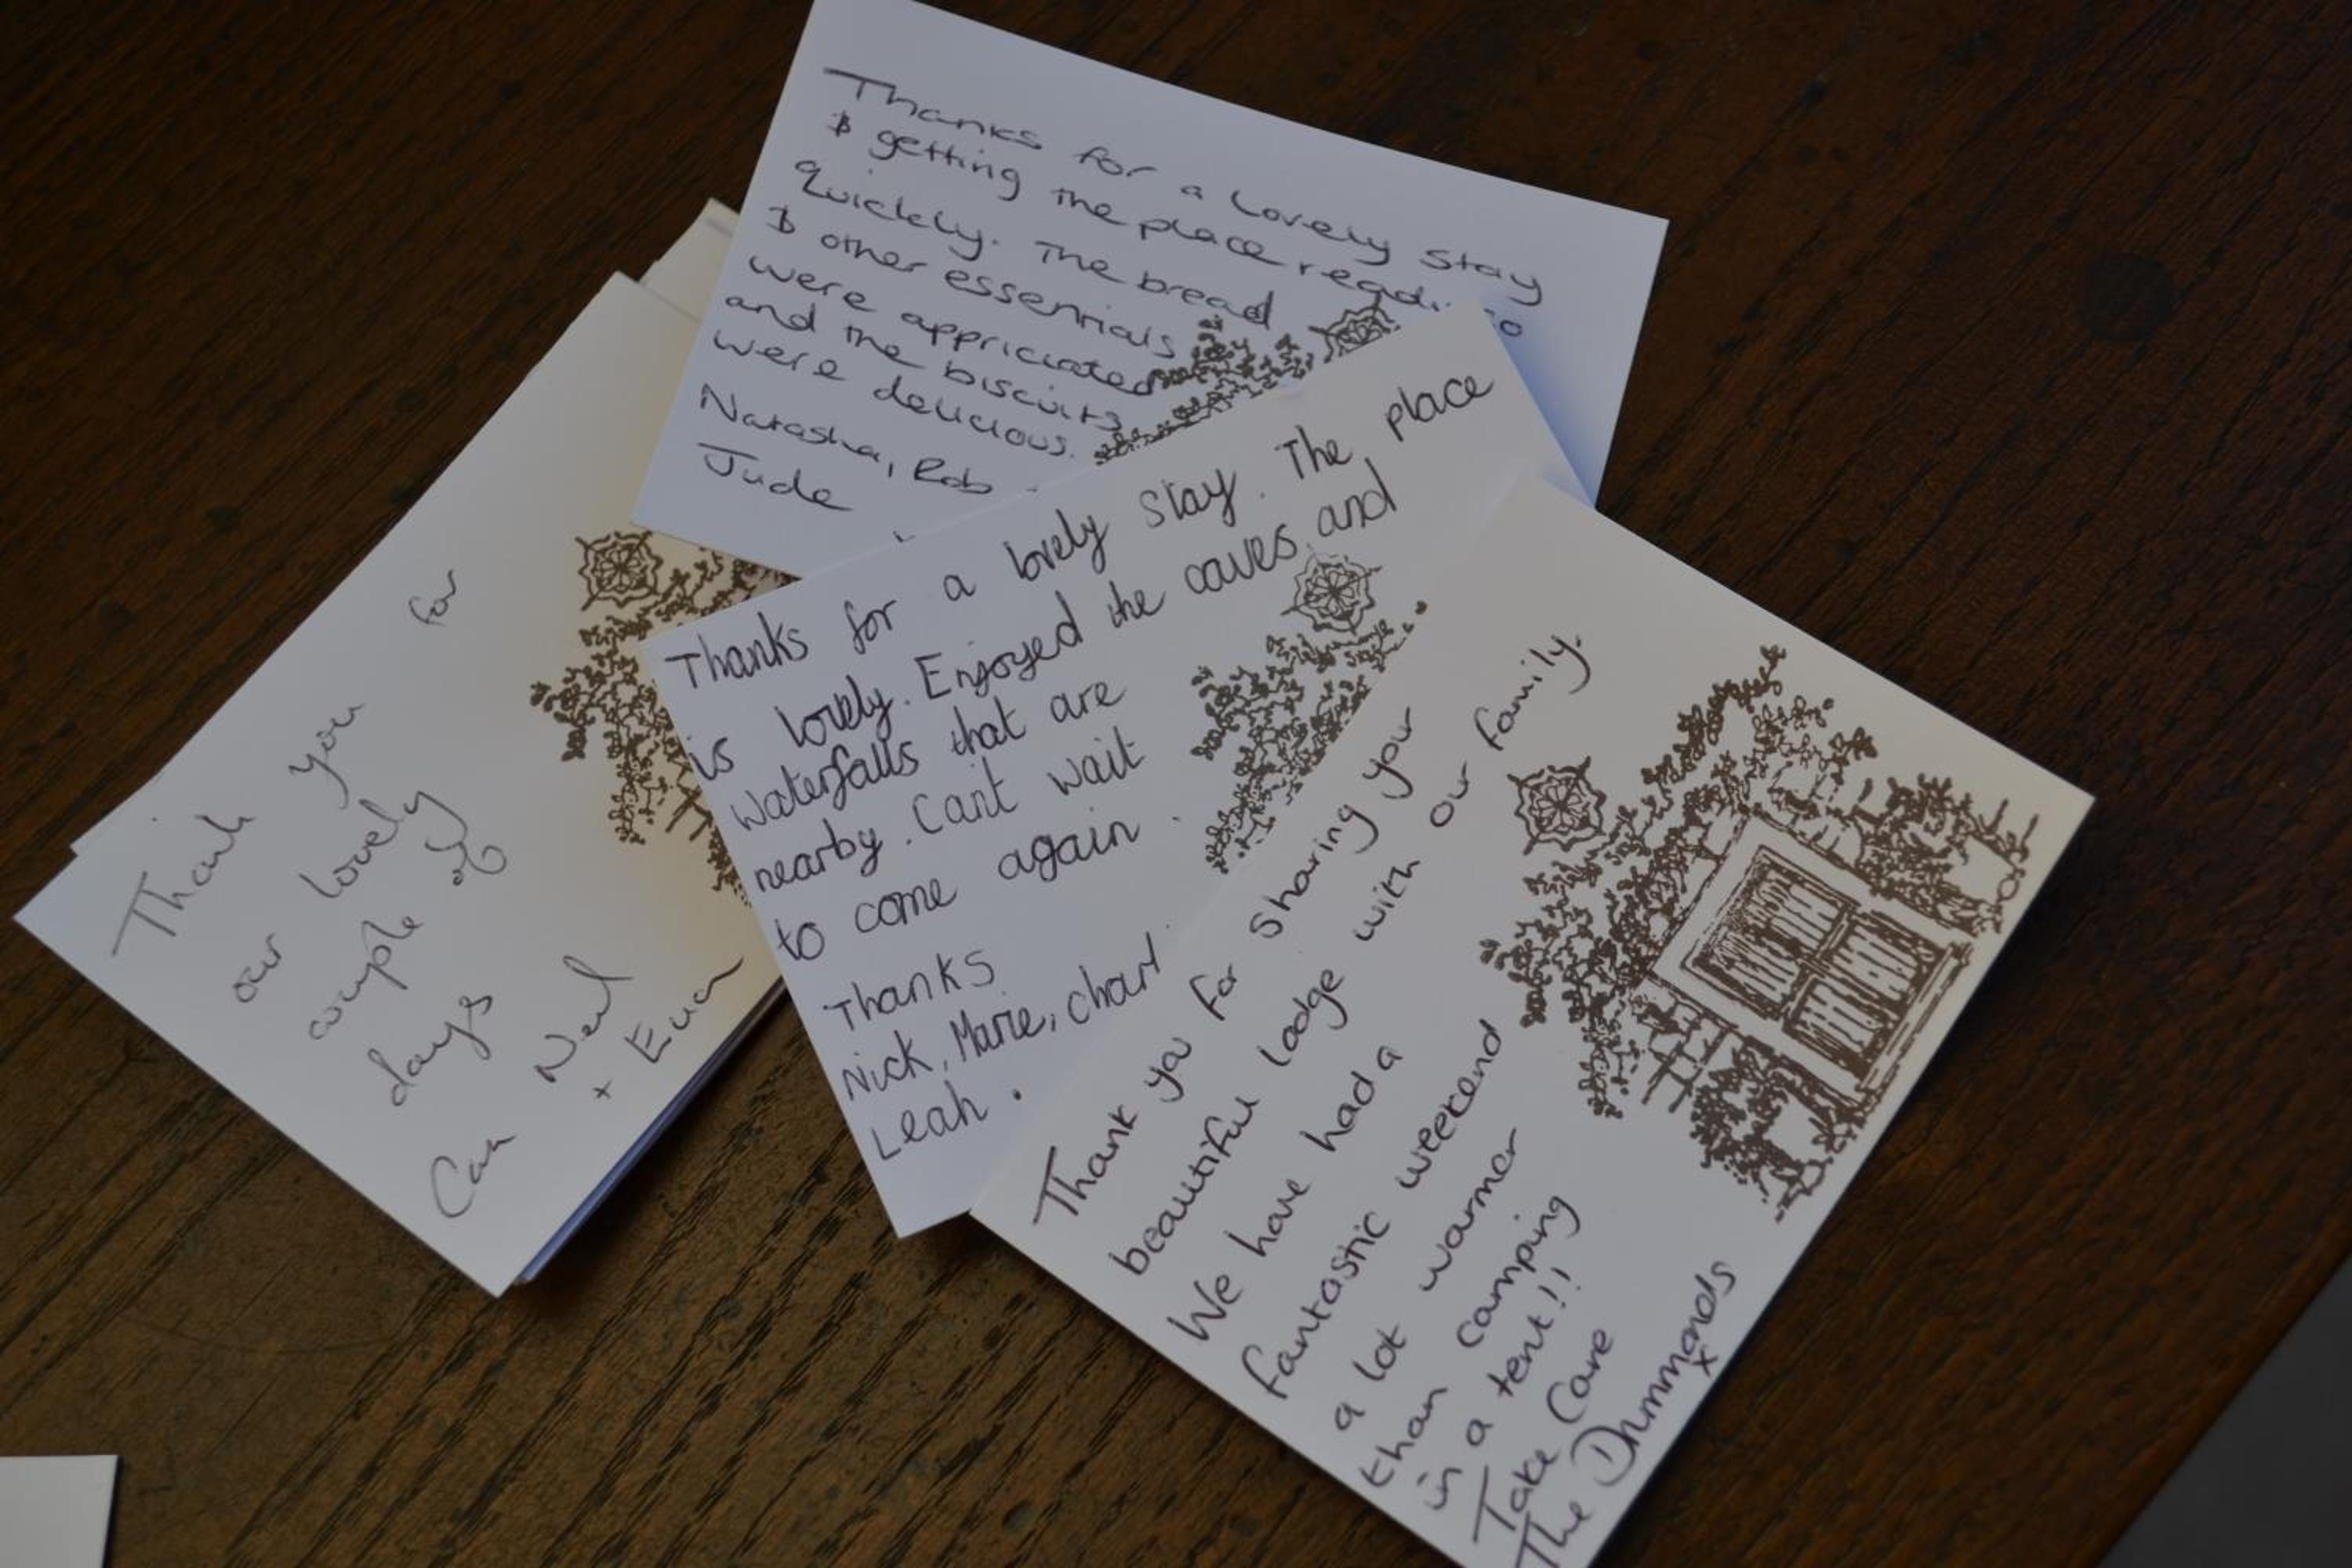 Thanks for a lovely stay
& getting the place ready so
quickly. The bread
& other essentials
were appriciated
and the biscuits
were delicious.
Natasha, Rob
Jude
Thank you for
our lovely
couple of
days
Neil
+ Euan
Thanks for a lovely stay. The place
is lovely. Enjoyed the caves and
waterfalls that are
nearby. Can't wait
to come again.
Thanks
Nick, Marie,
Leah.
Thank you for sharing your
beautiful lodge with our family.
We have had a
fantastic weekend
a lot warmer
than camping
in a tent!!
Take Care
The Drummonds
x